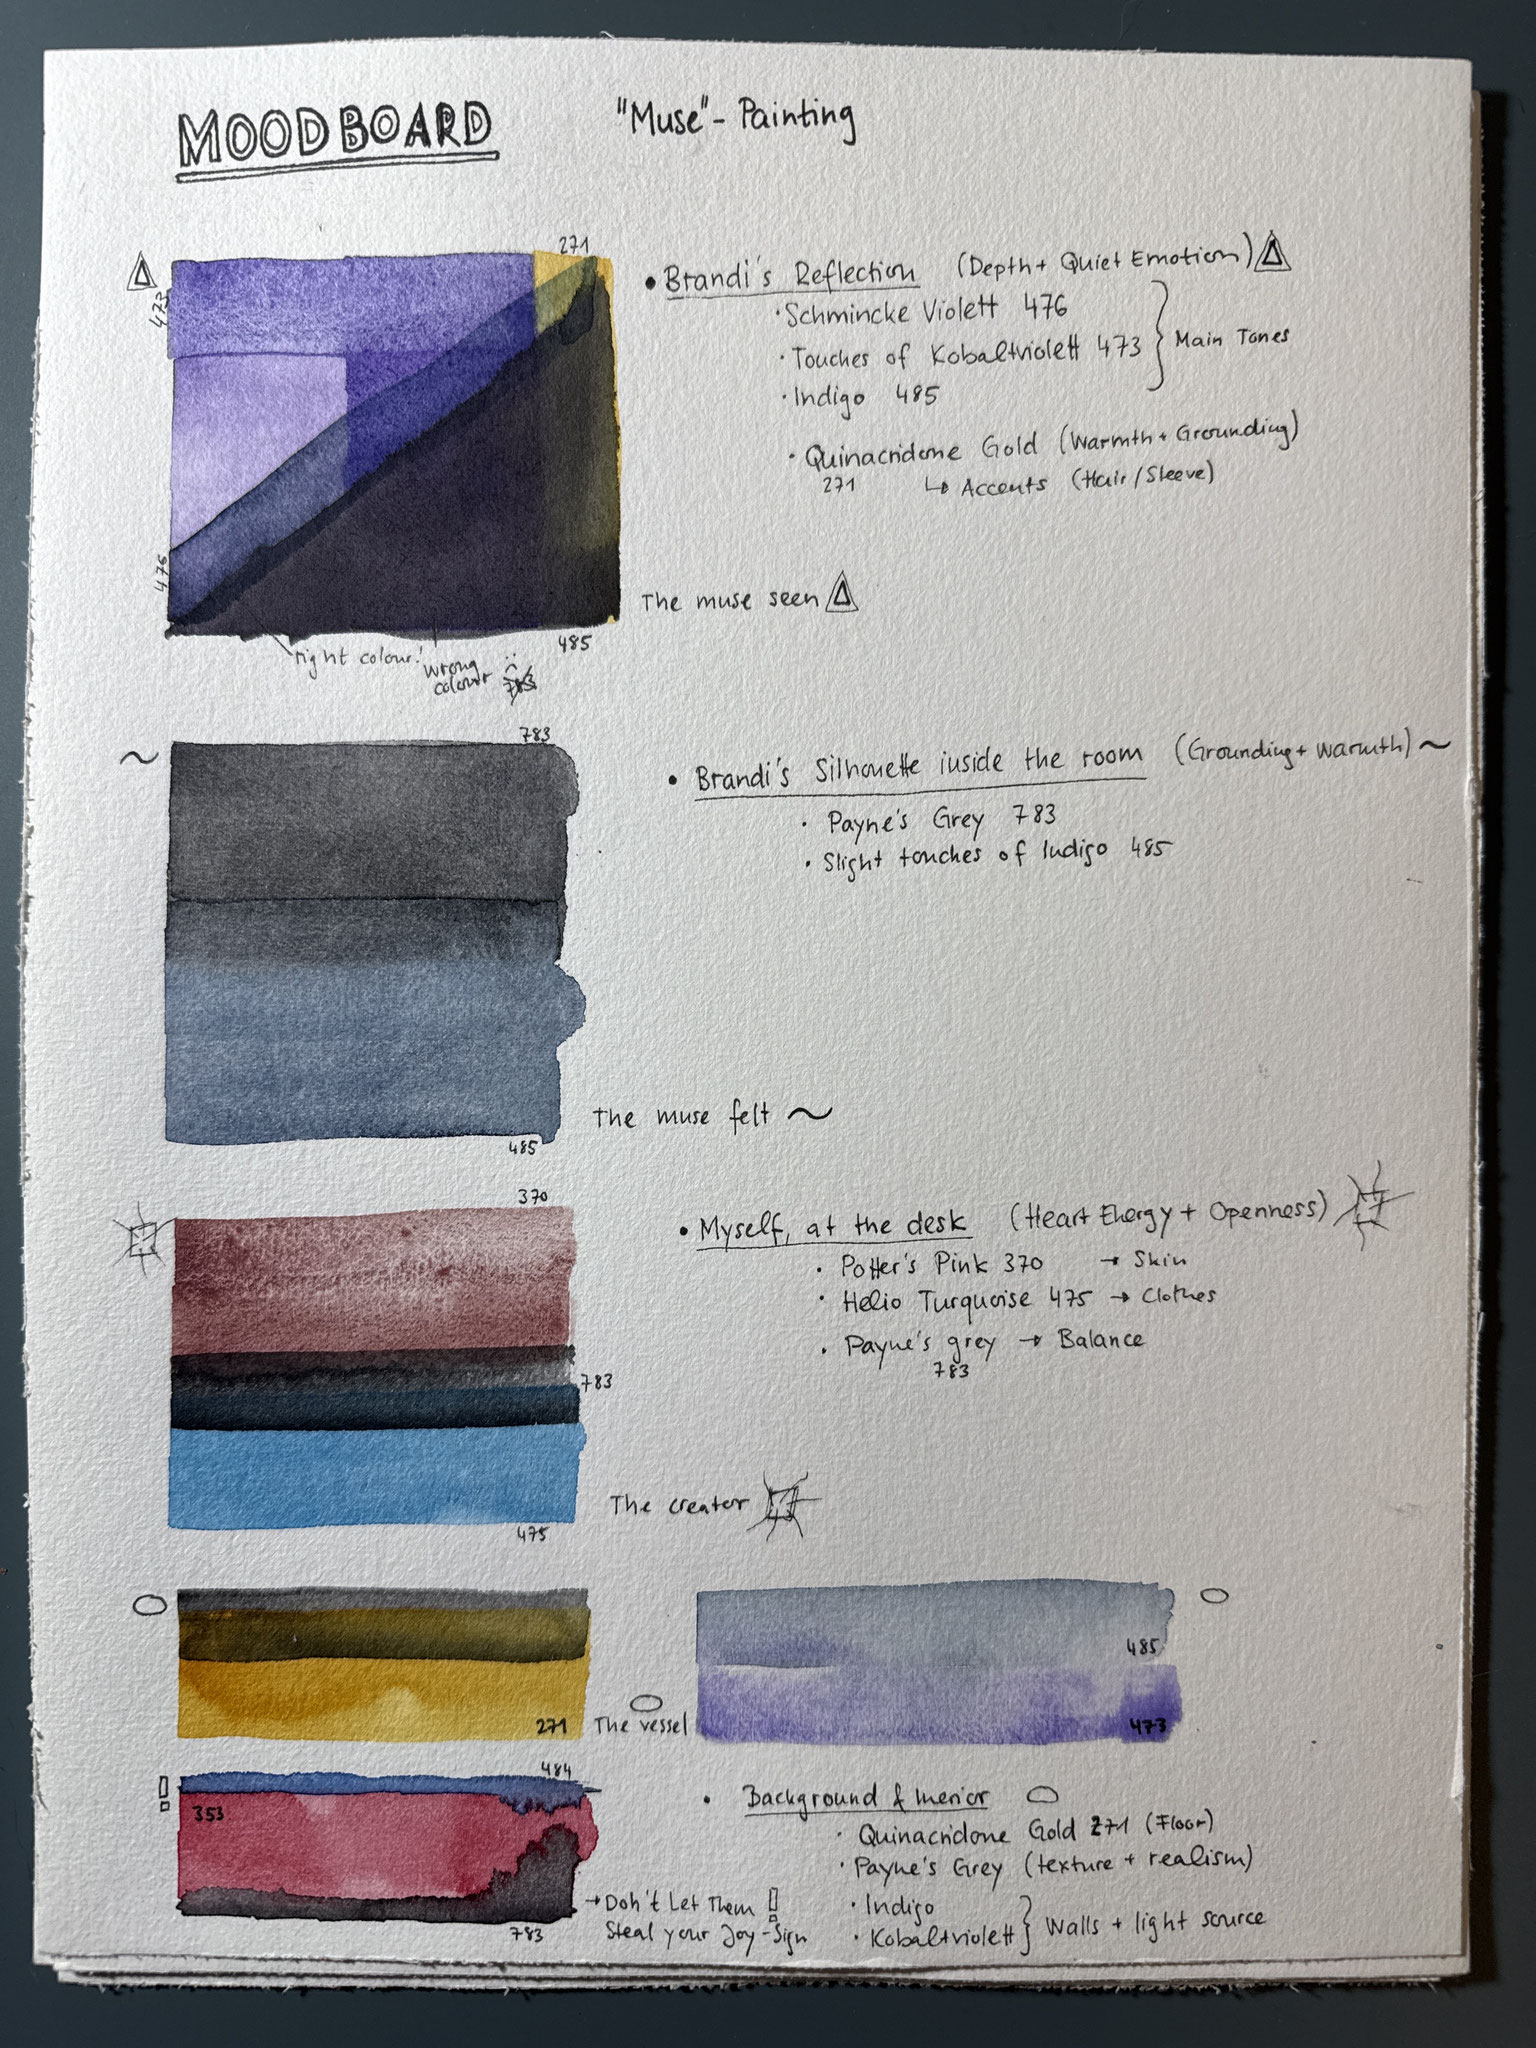 MOODBOARD
"Muse"- Painting
271
473
476
485
right colour!
wrong
colour
783
• Brandi's Reflection (Depth + Quiet Emotion)
· Schmincke Violett 476
· Touches of Kobaltviolett 473
· Indigo 485
} Main Tones
· Quinacridone Gold (Warmth + Grounding)
271 ↳ Accents (Hair/Sleeve)
The muse seen
~
783
485
• Brandi's Silhouette inside the room (Grounding + Warmth) ~
· Payne's Grey 783
· Slight touches of Indigo 485
The muse felt ~
370
783
475
• Myself, at the desk (Heart Energy + Openness)
· Potter's Pink 370 → Skin
· Helio Turquoise 475 → Clothes
· Payne's grey → Balance
783
The creator
271
The vessel
485
473
484
353
783
→ Don't Let Them !
Steal your Joy-Sign
• Background & Inerior
· Quinacridone Gold 271 (Floor)
· Payne's Grey (texture + realism)
· Indigo
· Kobaltviolett
} Walls + light source